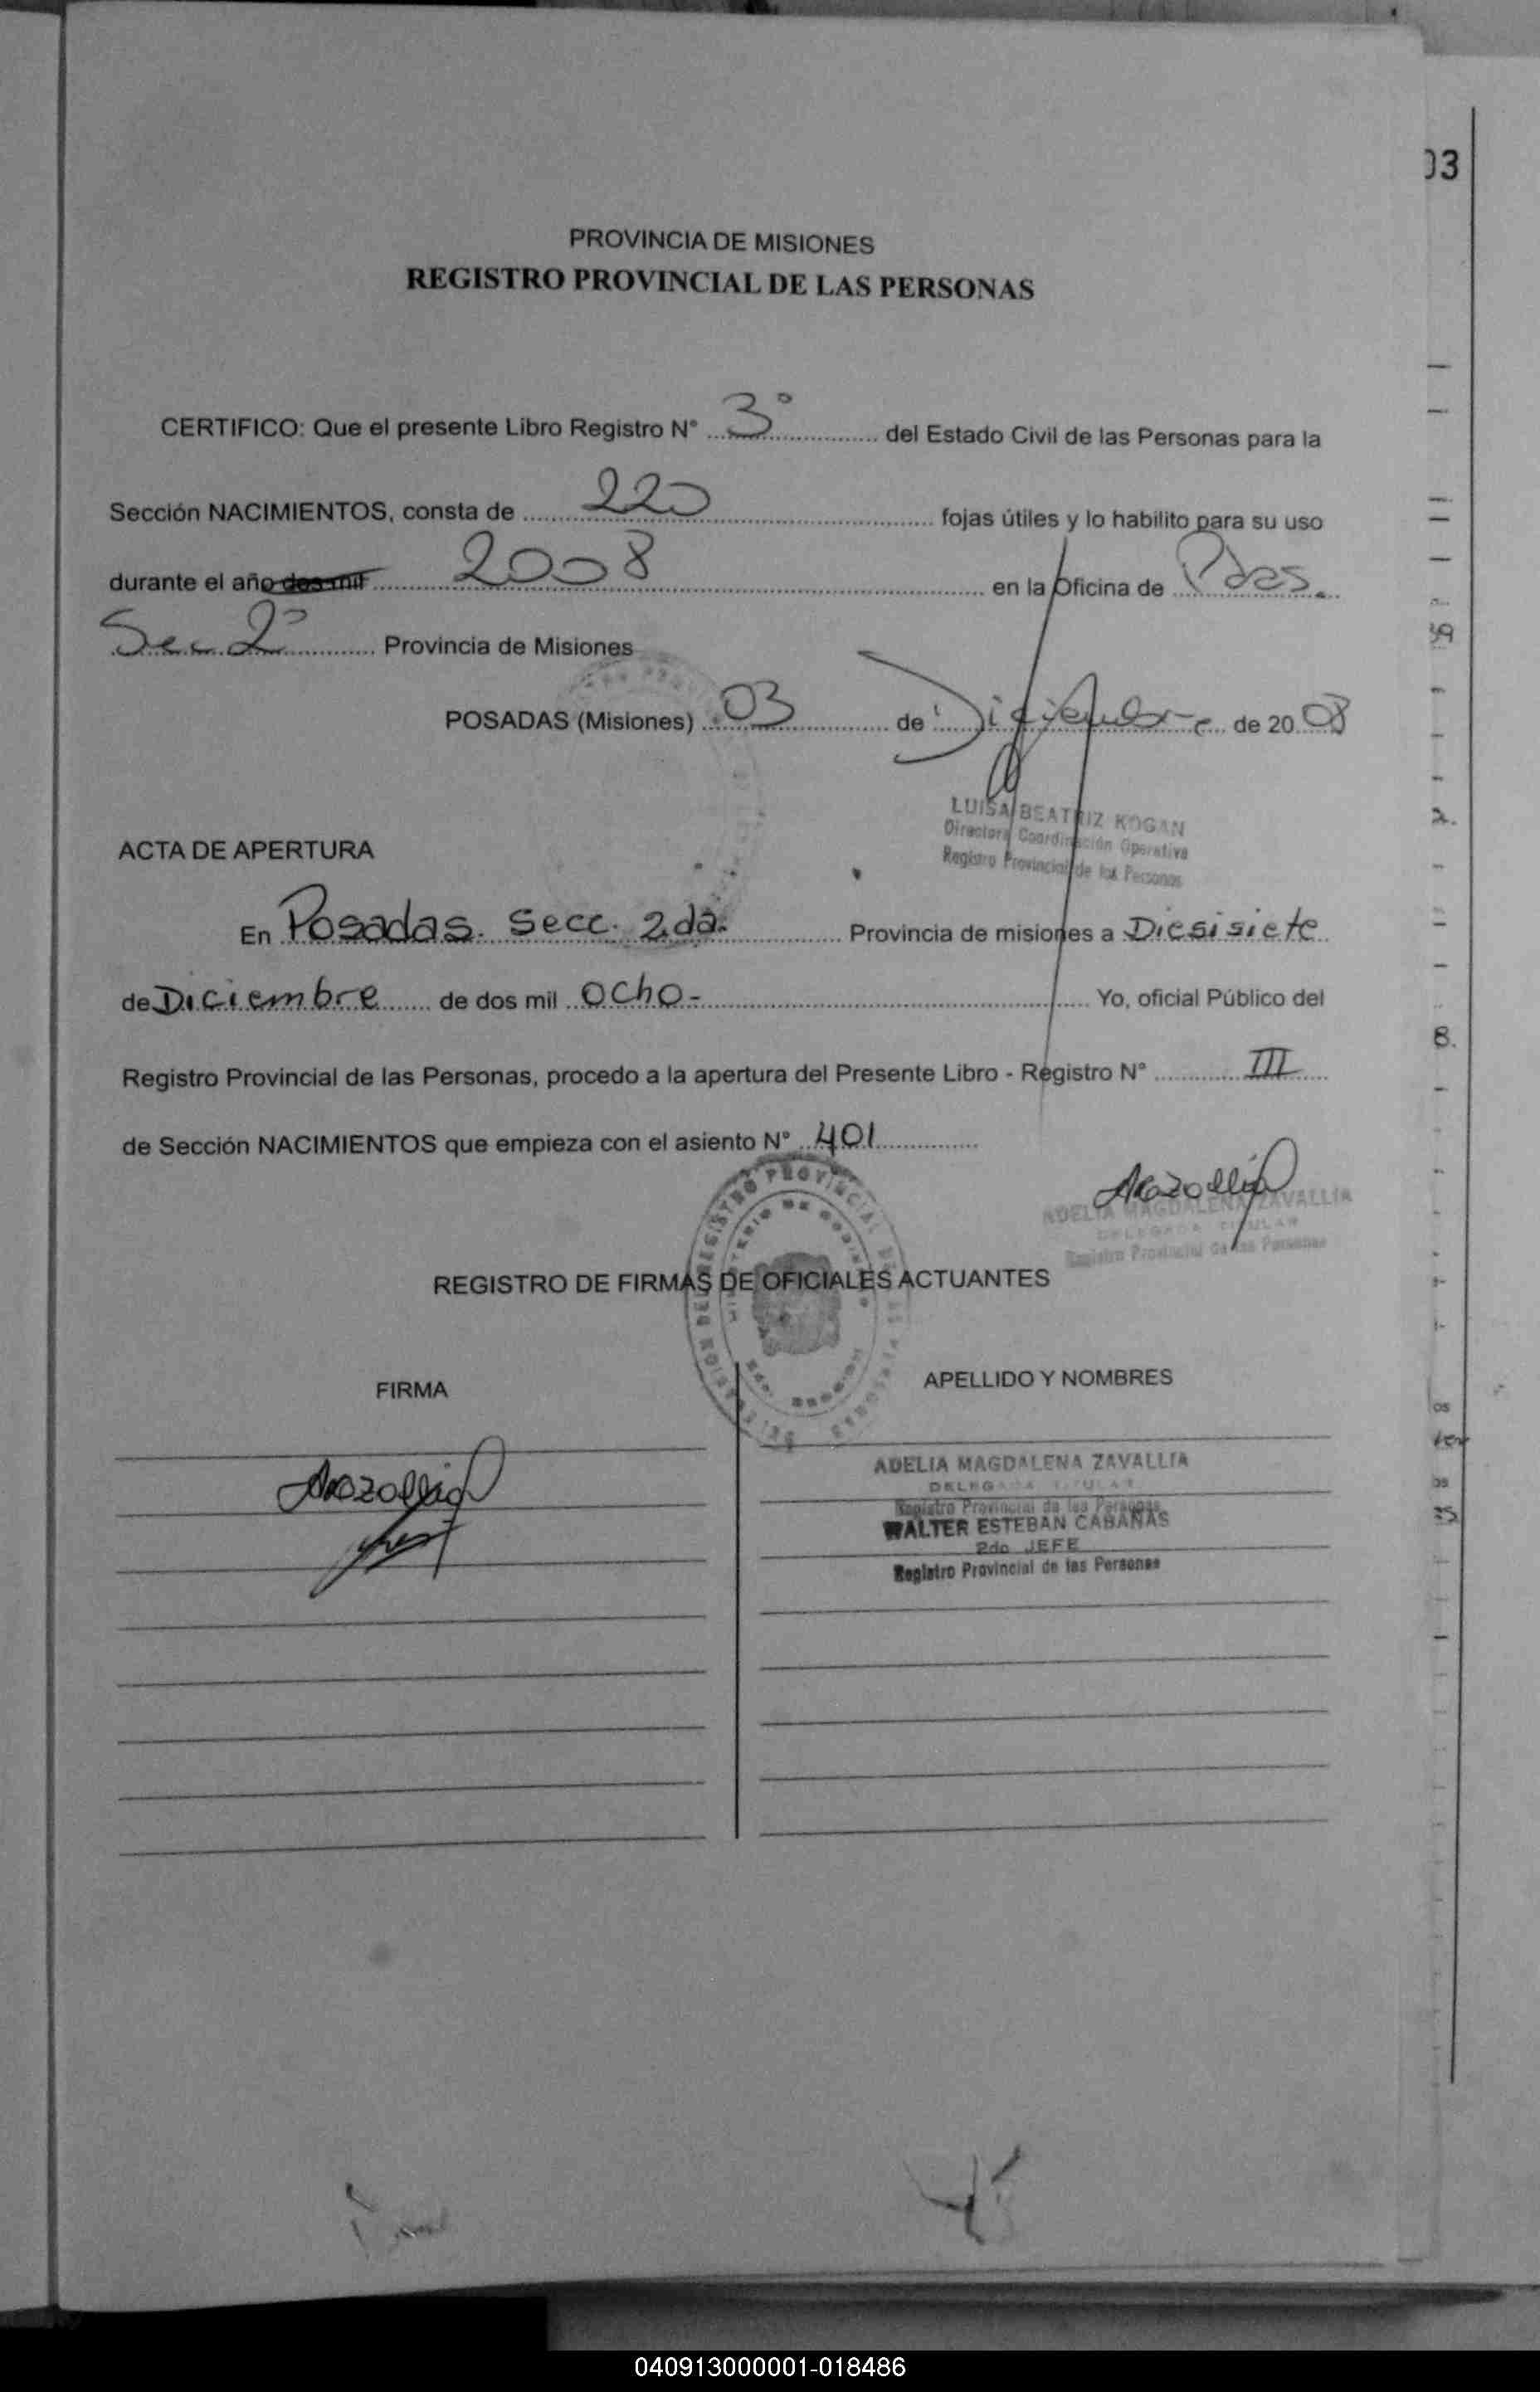 03
PROVINCIA DE MISIONES
REGISTRO PROVINCIAL DE LAS PERSONAS
CERTIFICO: Que el presente Libro Registro N° 3° del Estado Civil de las Personas para la
Sección NACIMIENTOS, consta de 220 fojas útiles y lo habilito para su uso
durante el año dos mil 2008 en la Oficina de Pdas.
Sec 2° Provincia de Misiones
POSADAS (Misiones) 03 de Diciembre de 2008
LUISA BEATRIZ KOGAN
Directora Coordinación Operativa
Registro Provincial de las Personas
ACTA DE APERTURA
En Posadas. Secc. 2da. Provincia de misiones a Diesisiete
de Diciembre de dos mil ocho- Yo, oficial Público del
Registro Provincial de las Personas, procedo a la apertura del Presente Libro - Registro N° III
de Sección NACIMIENTOS que empieza con el asiento N° 401
ADELIA MAGDALENA ZAVALLIA
DELEGADA TITULAR
Registro Provincial de las Personas
REGISTRO DE FIRMAS DE OFICIALES ACTUANTES
FIRMA
APELLIDO Y NOMBRES
ADELIA MAGDALENA ZAVALLIA
DELEGADA TITULAR
Registro Provincial de las Personas
WALTER ESTEBAN CABAÑAS
2do JEFE
Registro Provincial de las Personas
040913000001-018486